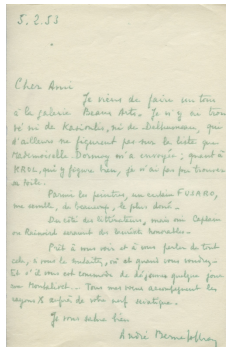 5.2.53
Cher Ami
Je viens de faire un tour
à la galerie Beaux Arts. Je n'y ai trou-
vé ni de Kasioulis, ni de Dalbanneau, que
d'ailleurs ne figurent pas sur la liste que
Mademoiselle Dornoy m'a envoyée ; quant à
KROL, qui y figure bien, je n'ai pas pu trouver
sa toile.
Parmi les peintres, un certain FUSARO,
me semble, de beaucoup, le plus doué.
Du côté des littérateurs,
et Rainoird seraient des
Prêt à vous voir et à vous parler de tout
cela, si vous le souhaitez, où et quand vous voudrez.
Et s'il vous est commode de déjeuner quelque jour
au Montalivet. Tous mes vœux accompagnent les
rayons X auprès de votre nerf sciatique.
Je vous salue bien
André Berne Joffroy